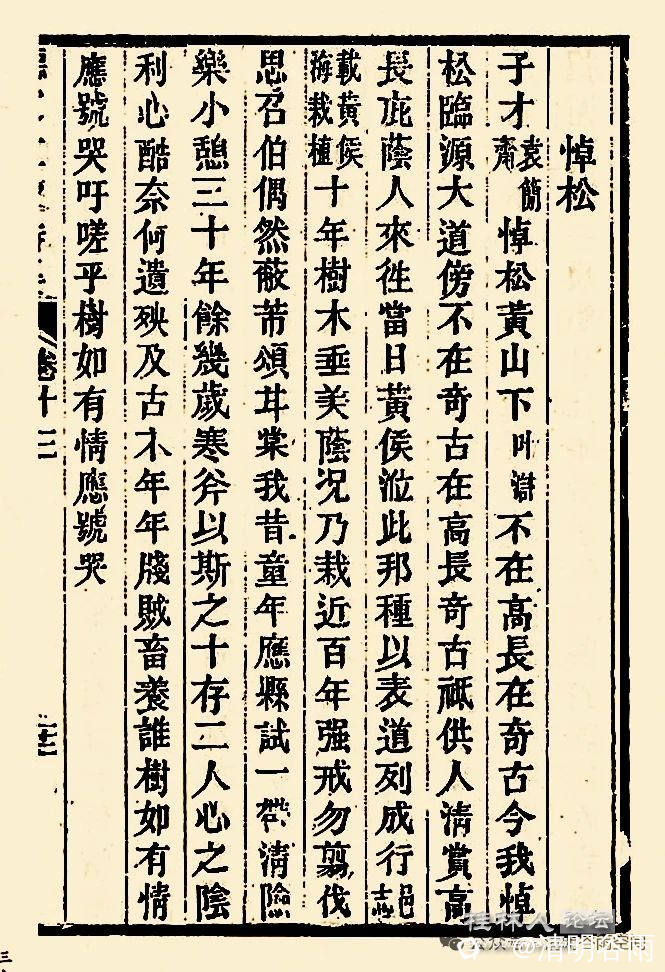 悼松
子才袁簡齋悼松黃山下叶滸不在高長在奇古今我悼
松臨源大道傍不在奇古在高長奇古祇供人清賞高
長庇蔭人來徃當日黃侯涖此邦種以表道列成行邑志
載黃侯海栽植十年樹木垂美蔭况乃栽近百年强戒勿翦伐
思召伯偶然蔽芾頌甘棠我昔童年應縣試一帶清陰
樂小憩三十年餘幾歲寒斧以斯之十存二人心之陰
利心酷奈何遺殃及古木年年戕賊畜養誰樹如有情
應號哭吁嗟乎樹如有情應號哭
卷十三
桂林人论坛
@清明谷雨